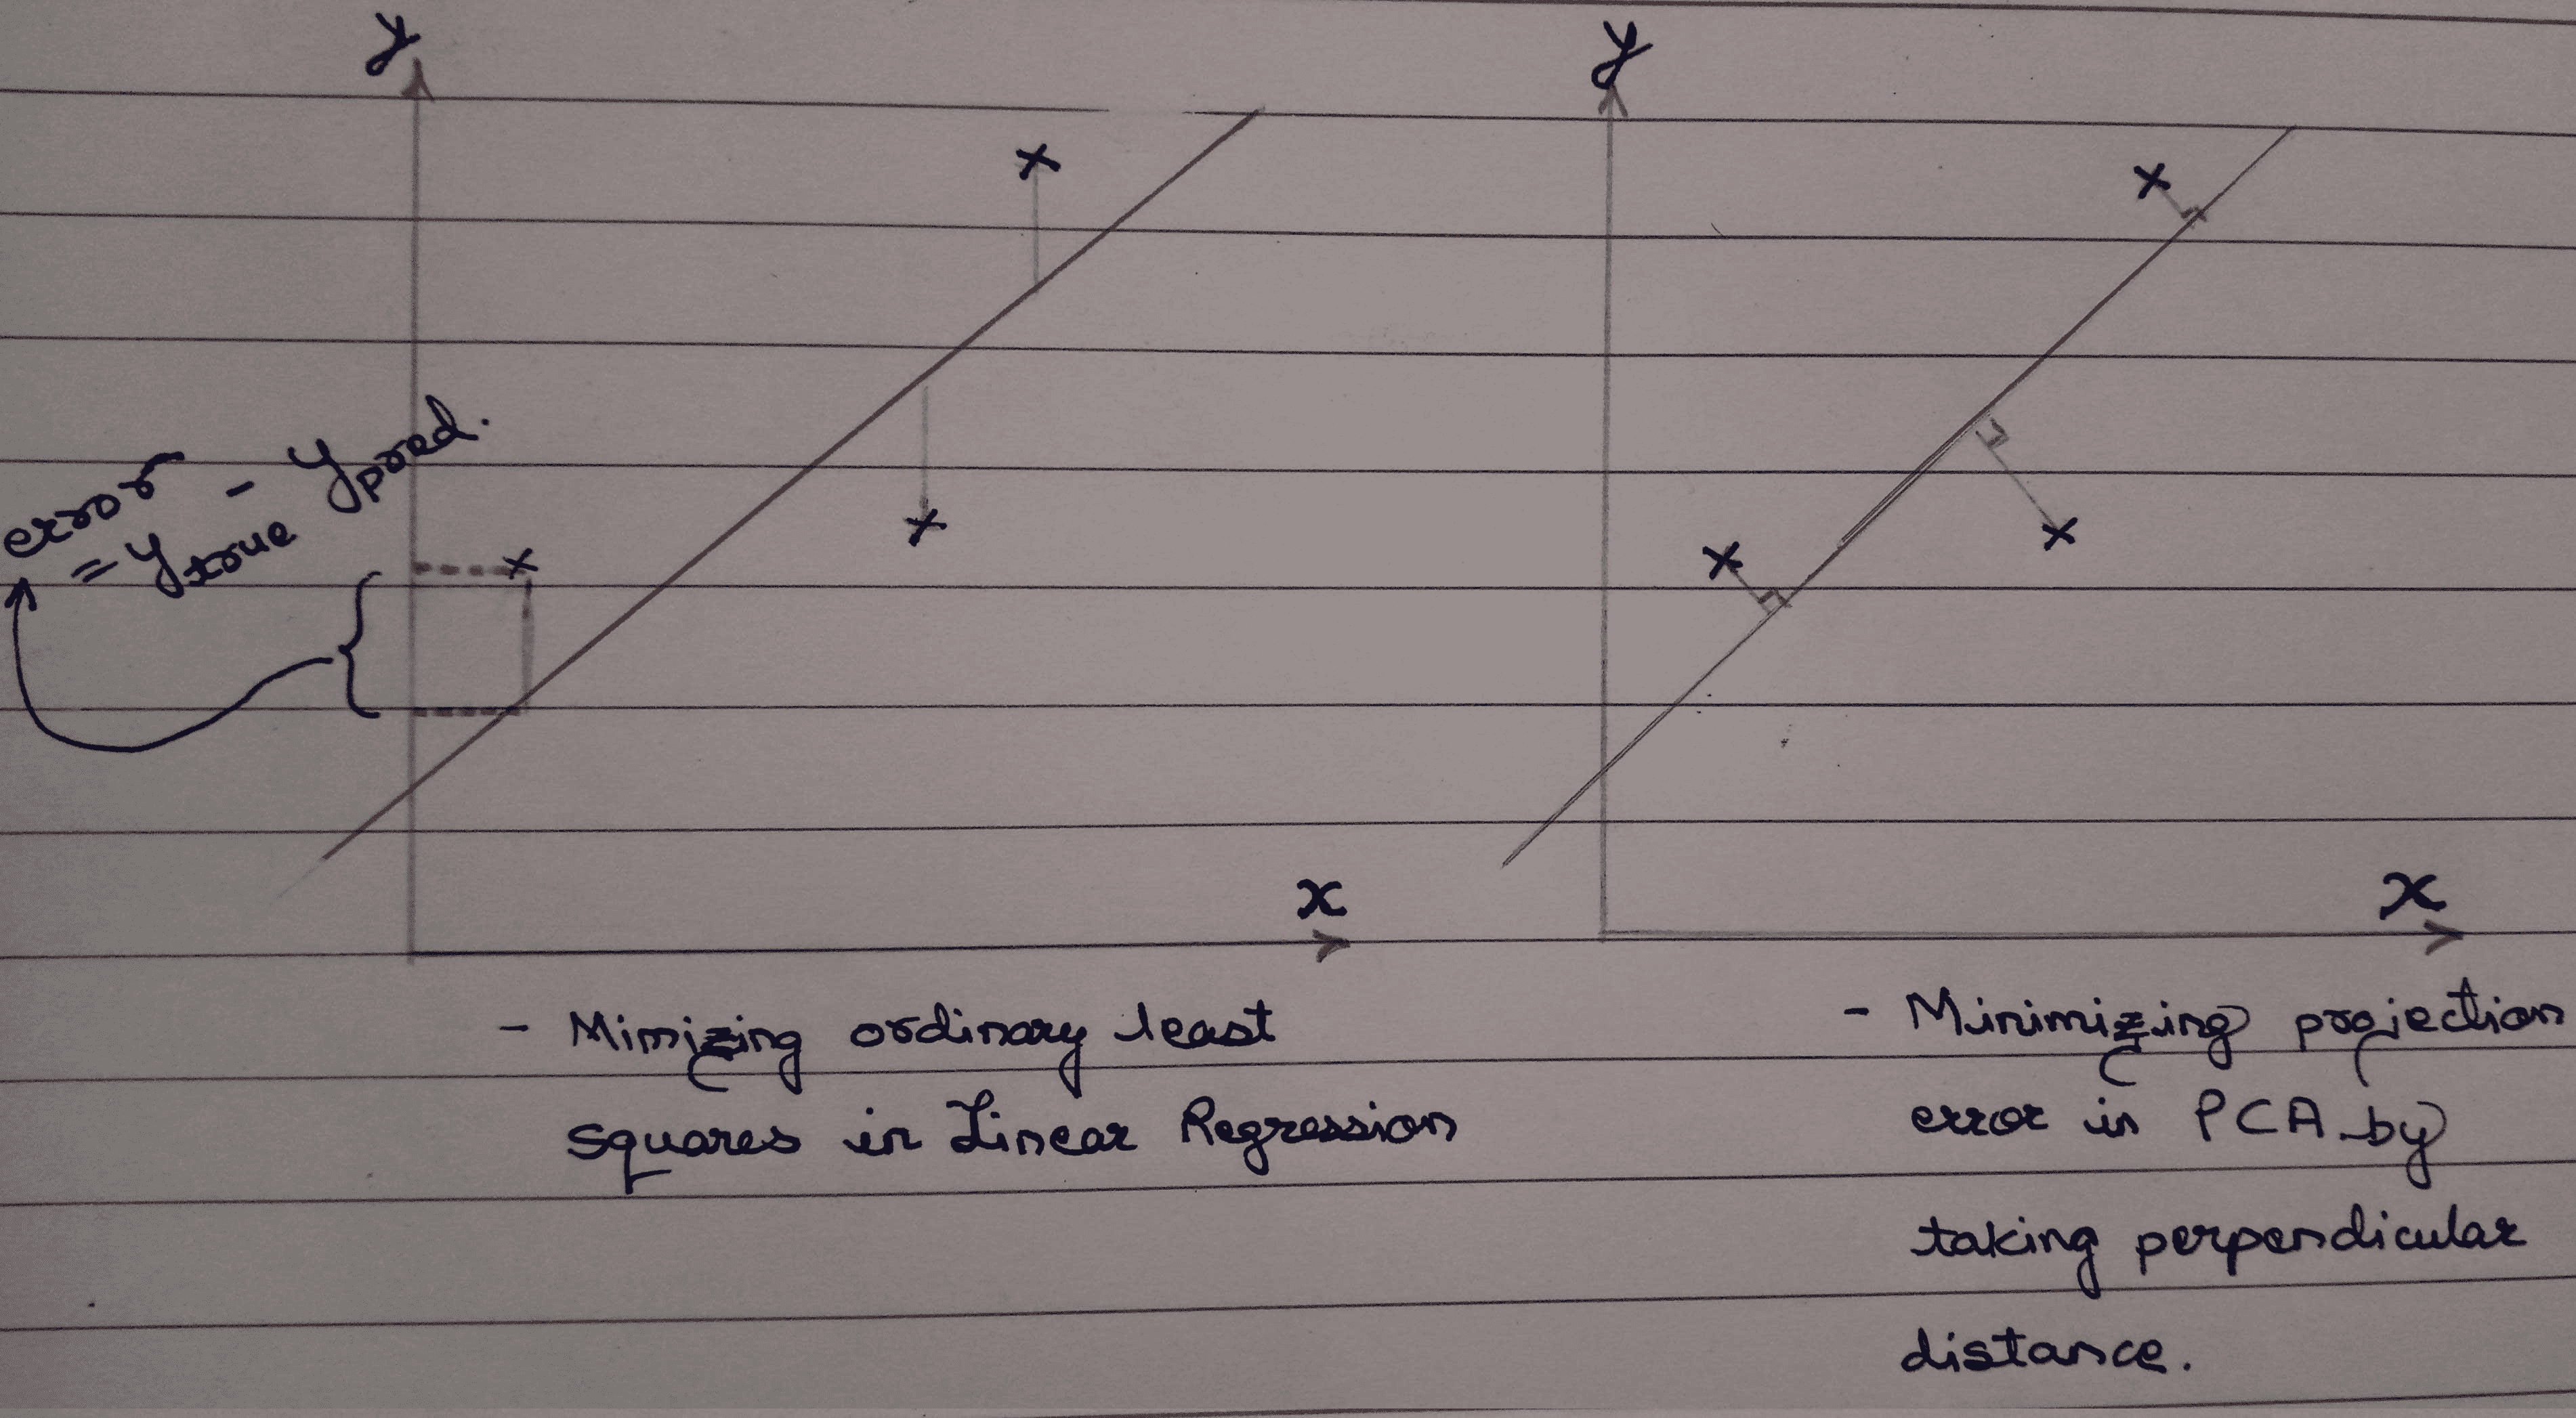 y
y
error
= y true - y pred.
x
x
- Mimizing ordinary least
squares in Linear Regression
- Minimizing projection
error in PCA by
taking perpendicular
distance.